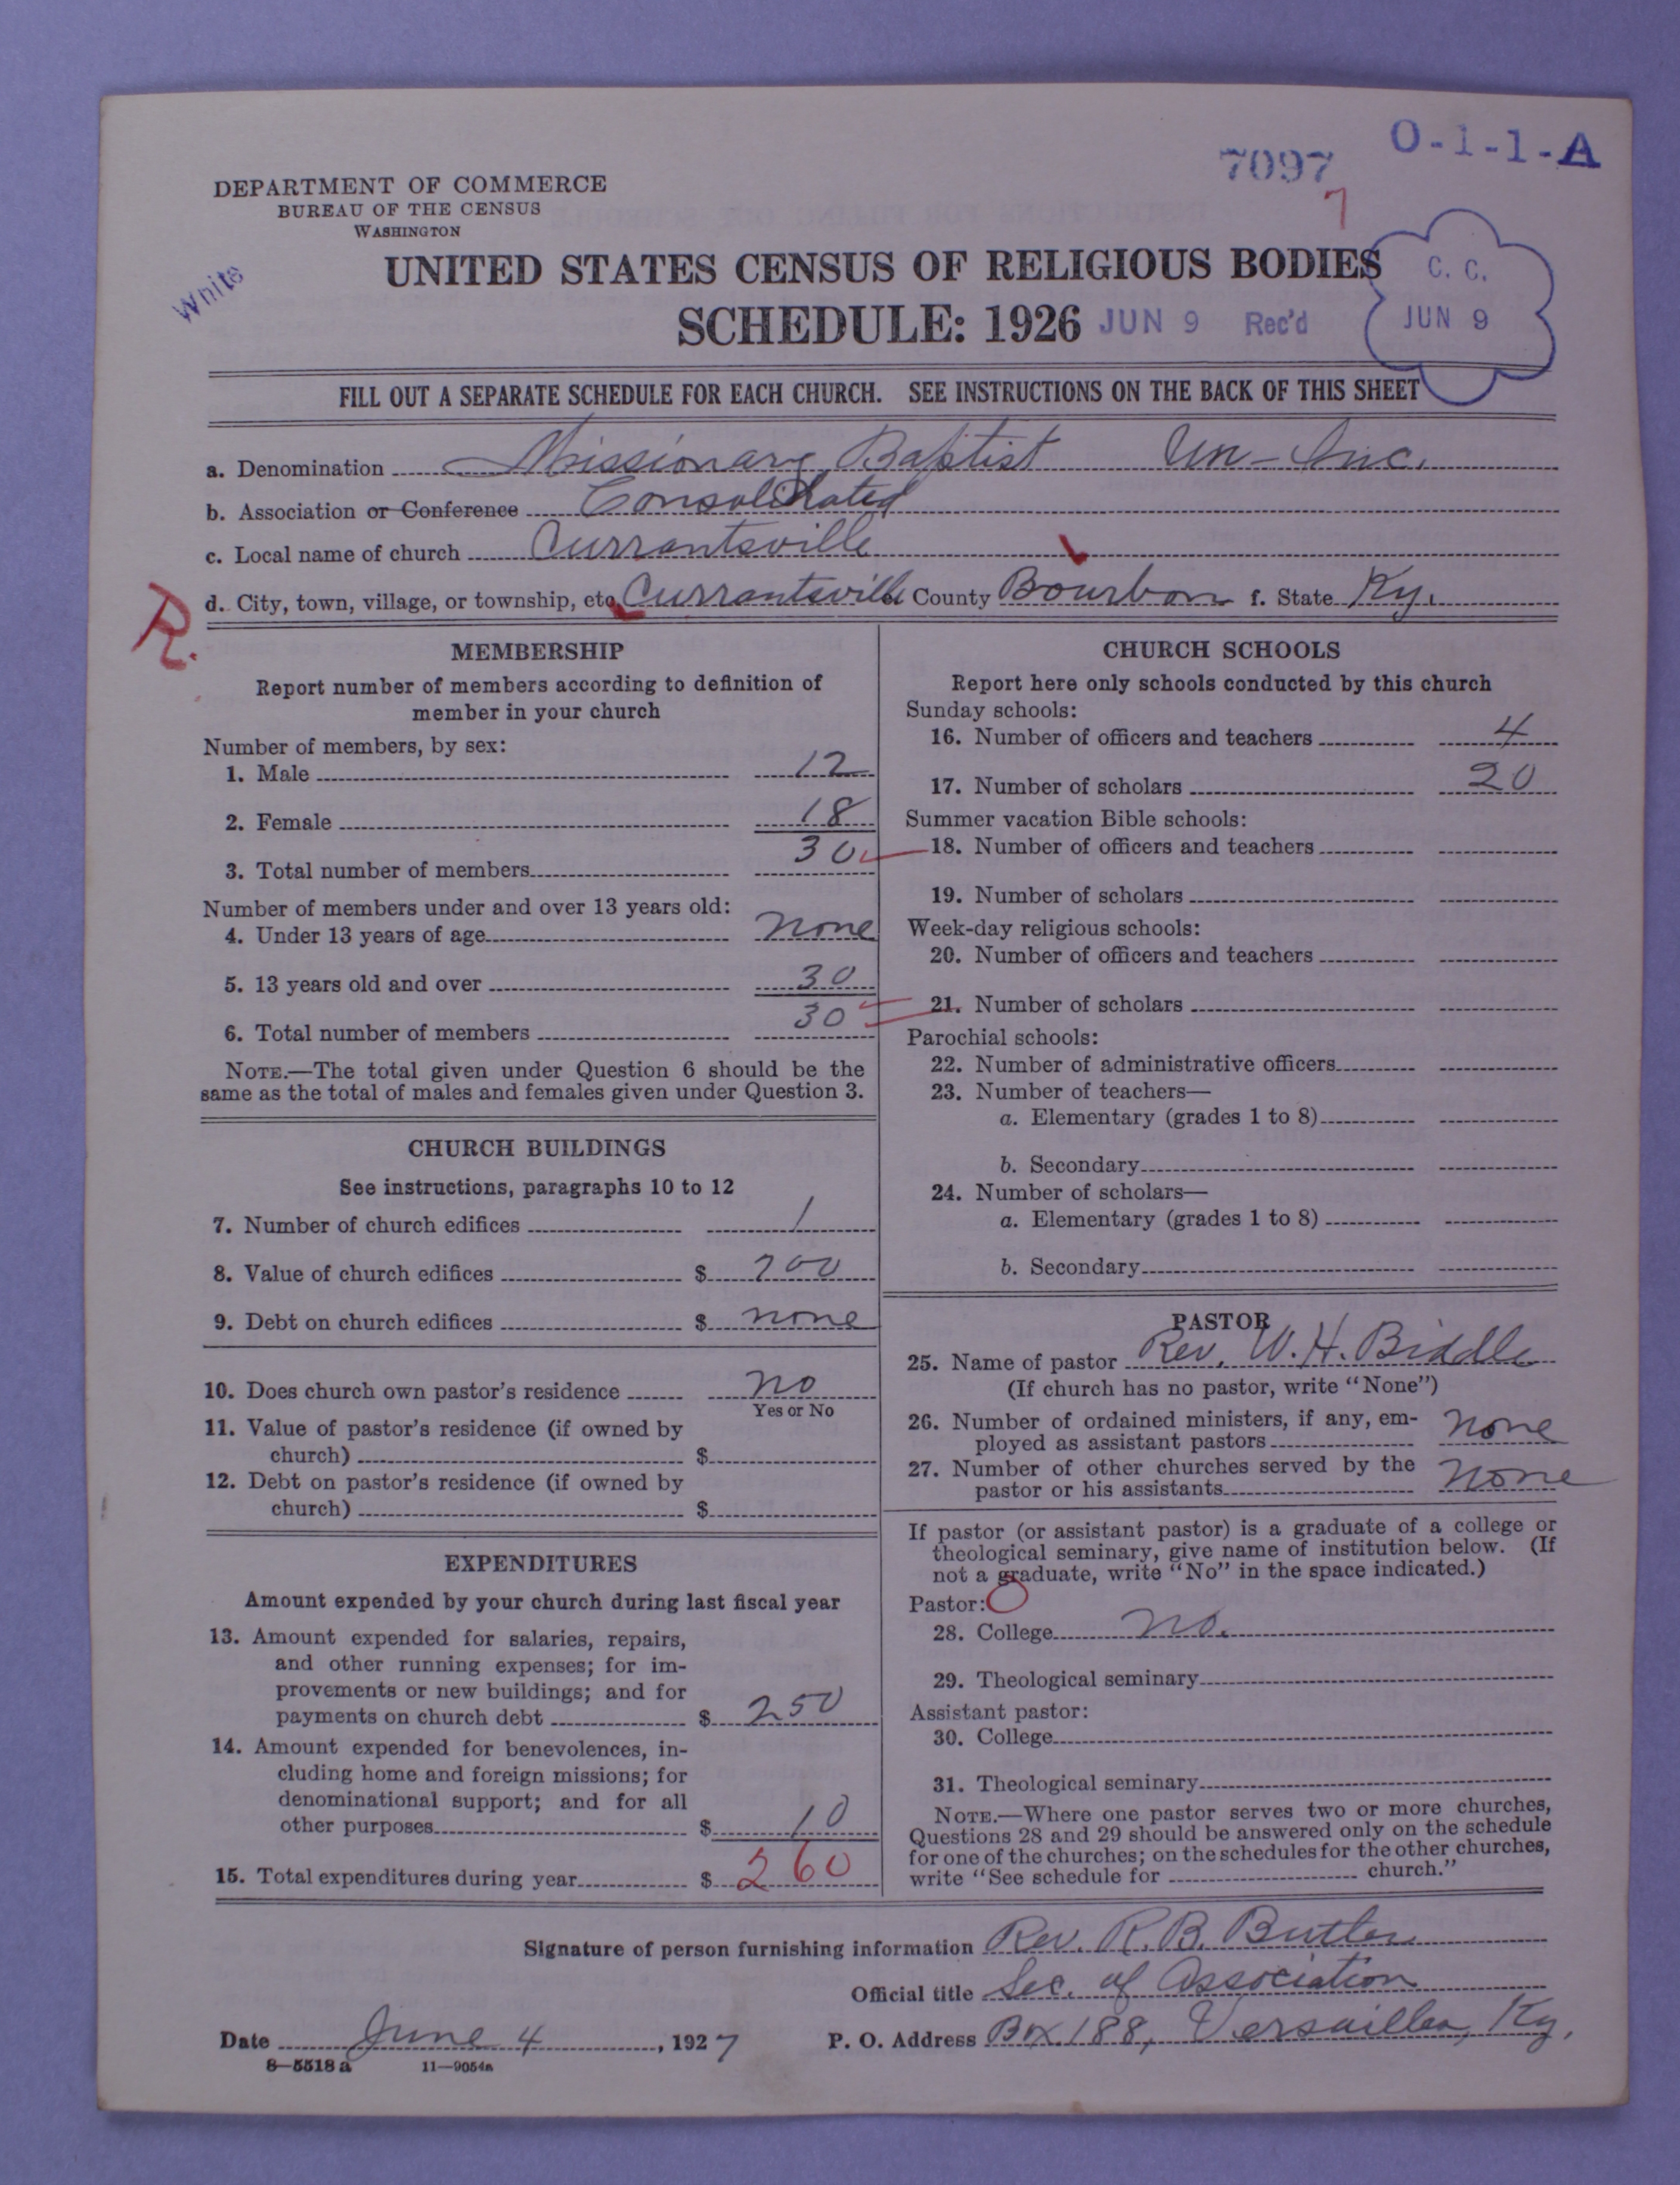 7097
O-1-1-A
7
DEPARTMENT OF COMMERCE
BUREAU OF THE CENSUS
WASHINGTON
White
UNITED STATES CENSUS OF RELIGIOUS BODIES
C. C.
JUN 9
SCHEDULE: 1926 JUN 9 Rec'd
FILL OUT A SEPARATE SCHEDULE FOR EACH CHURCH. SEE INSTRUCTIONS ON THE BACK OF THIS SHEET
a. Denomination Missionary Baptist Un-Inc.
b. Association or Conference Consolidated
c. Local name of church Currantsville
R.
d. City, town, village, or township, etc. Currantsville County Bourbon f. State Ky.
MEMBERSHIP
Report number of members according to definition of
member in your church
Number of members, by sex:
1. Male 12
2. Female 18
3. Total number of members 30
Number of members under and over 13 years old:
4. Under 13 years of age none
5. 13 years old and over 30
6. Total number of members 30
NOTE.—The total given under Question 6 should be the
same as the total of males and females given under Question 3.
CHURCH BUILDINGS
See instructions, paragraphs 10 to 12
7. Number of church edifices 1
8. Value of church edifices $ 700
9. Debt on church edifices $ none
10. Does church own pastor's residence no
Yes or No
11. Value of pastor's residence (if owned by
church) $
12. Debt on pastor's residence (if owned by
church) $
EXPENDITURES
Amount expended by your church during last fiscal year
13. Amount expended for salaries, repairs,
and other running expenses; for im-
provements or new buildings; and for
payments on church debt $ 250
14. Amount expended for benevolences, in-
cluding home and foreign missions; for
denominational support; and for all
other purposes $ 10
15. Total expenditures during year $ 260
CHURCH SCHOOLS
Report here only schools conducted by this church
Sunday schools:
16. Number of officers and teachers 4
17. Number of scholars 20
Summer vacation Bible schools:
18. Number of officers and teachers
19. Number of scholars
Week-day religious schools:
20. Number of officers and teachers
21. Number of scholars
Parochial schools:
22. Number of administrative officers
23. Number of teachers—
a. Elementary (grades 1 to 8)
b. Secondary
24. Number of scholars—
a. Elementary (grades 1 to 8)
b. Secondary
PASTOR
25. Name of pastor Rev. W. H. Biddle
(If church has no pastor, write "None")
26. Number of ordained ministers, if any, em-
ployed as assistant pastors none
27. Number of other churches served by the
pastor or his assistants none
If pastor (or assistant pastor) is a graduate of a college or
theological seminary, give name of institution below. (If
not a graduate, write "No" in the space indicated.)
Pastor: O
28. College no.
29. Theological seminary
Assistant pastor:
30. College
31. Theological seminary
NOTE.—Where one pastor serves two or more churches,
Questions 28 and 29 should be answered only on the schedule
for one of the churches; on the schedules for the other churches,
write "See schedule for church."
Signature of person furnishing information Rev. R. B. Butler
Official title Sec. of Association
Date June 4, 1927 P. O. Address Box 188, Versailles, Ky.
8—5518 a 11—9054a